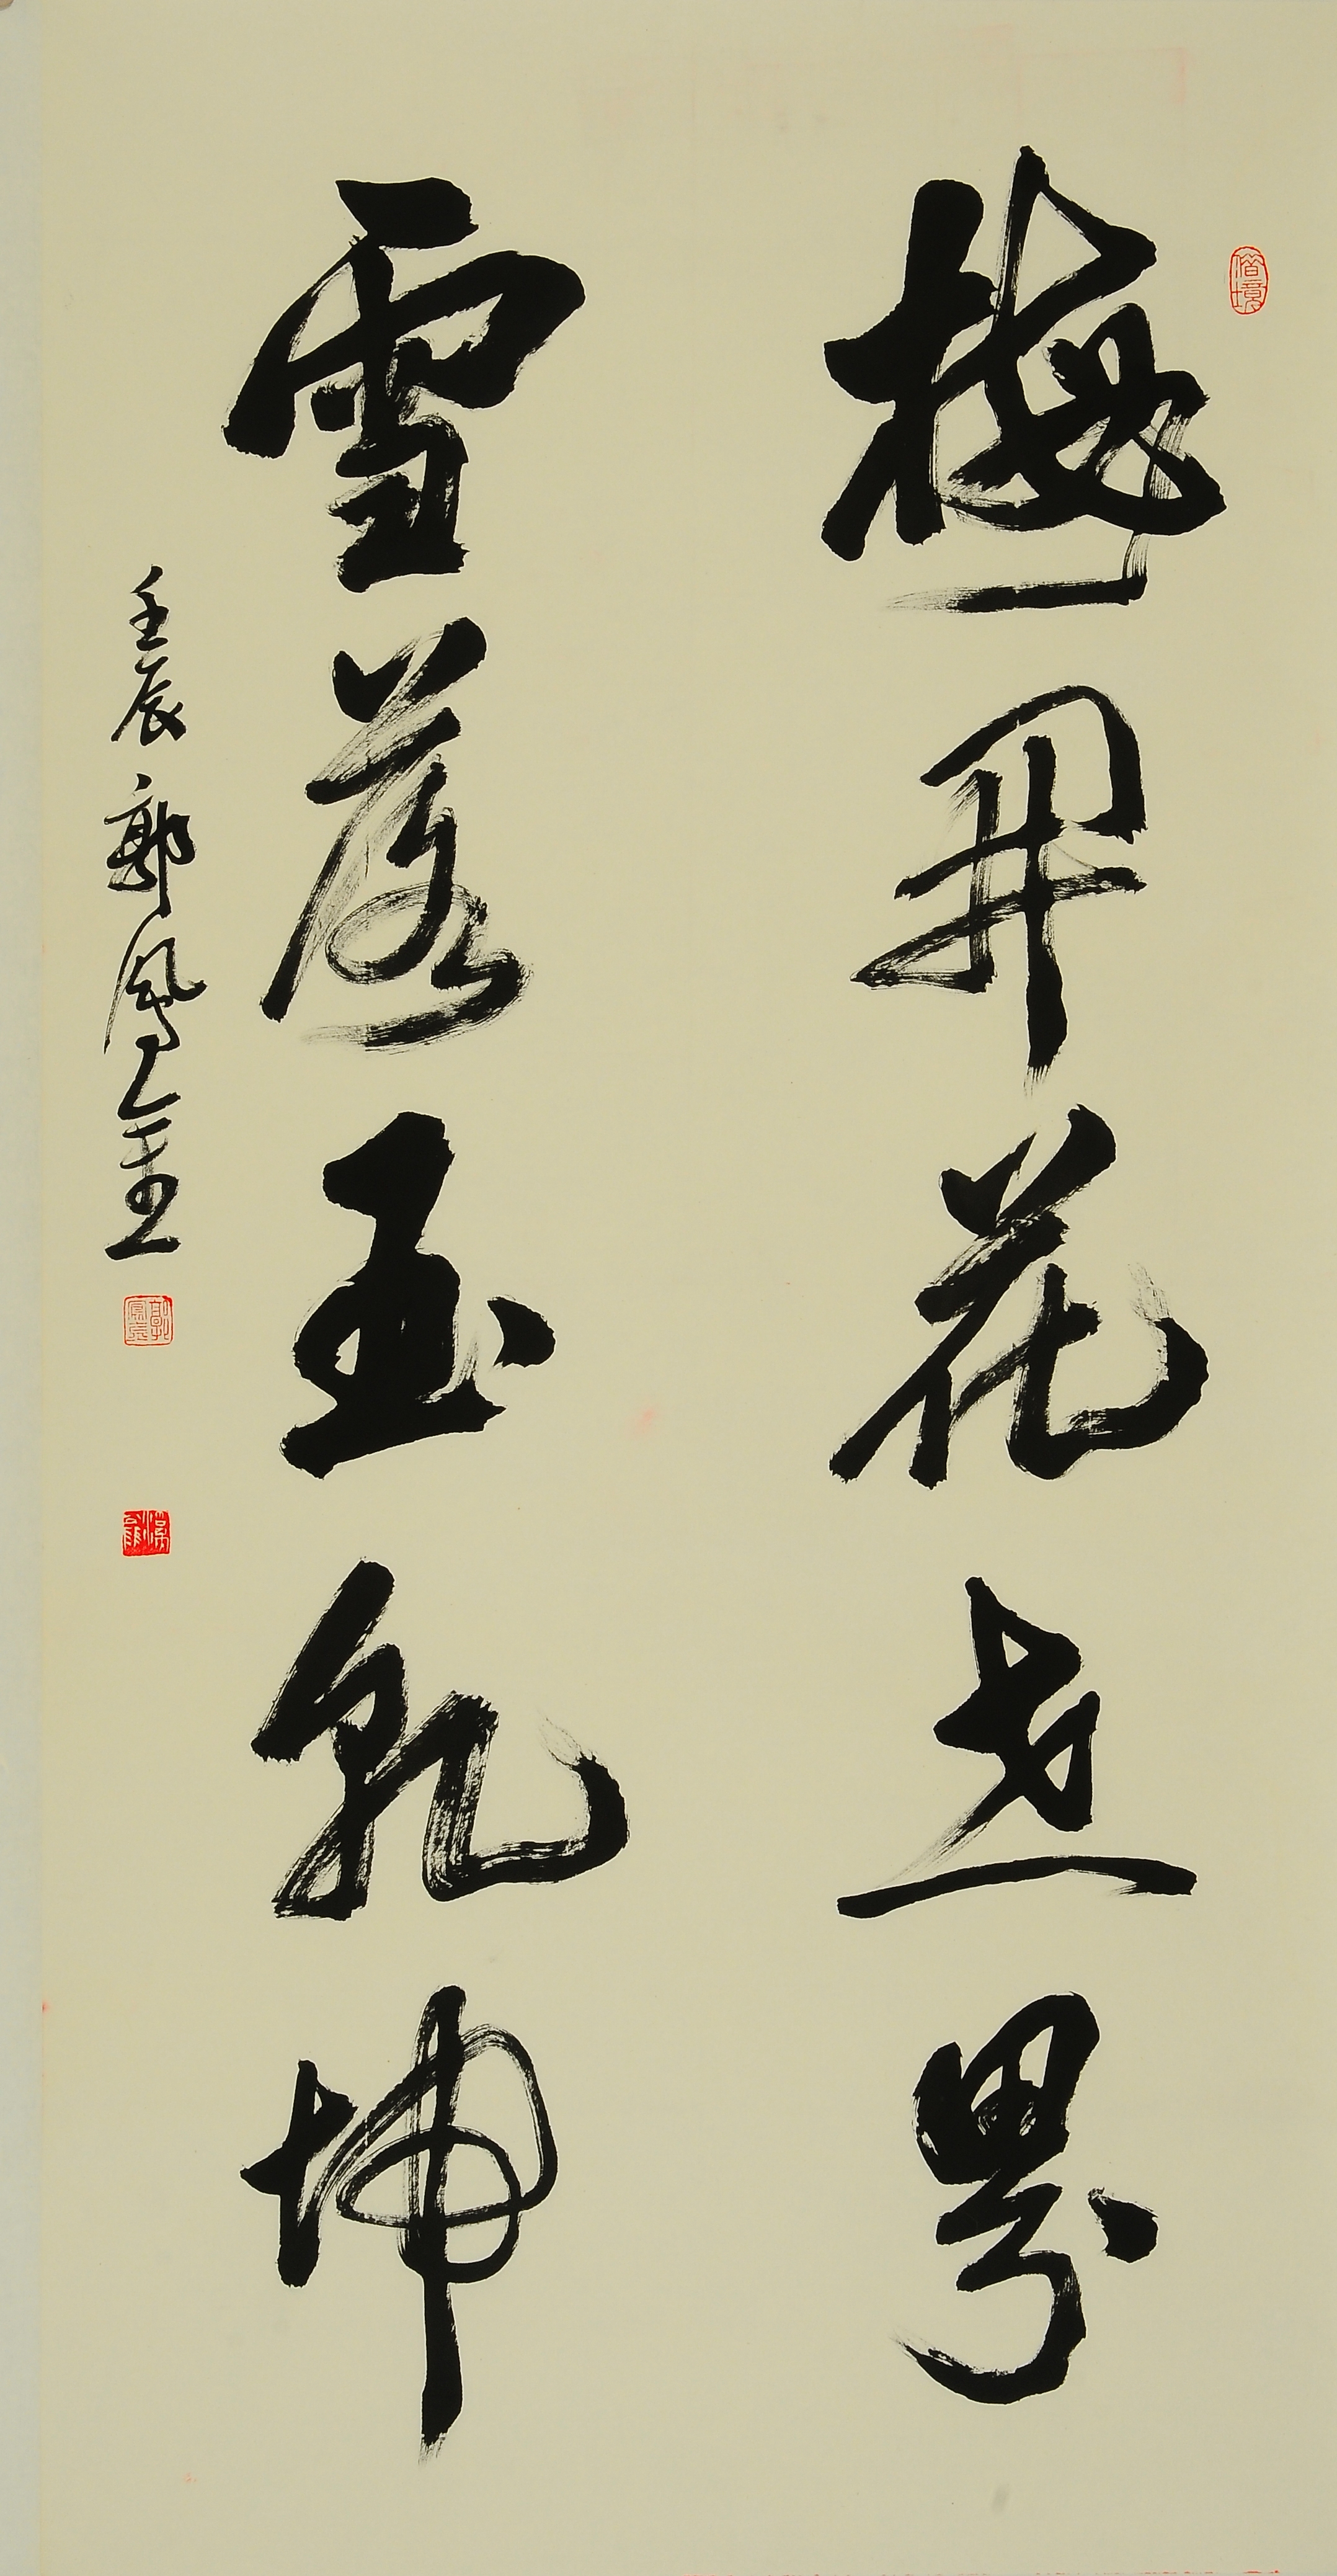 梅開花世界
雪落玉乾坤
壬辰郭鳳臺